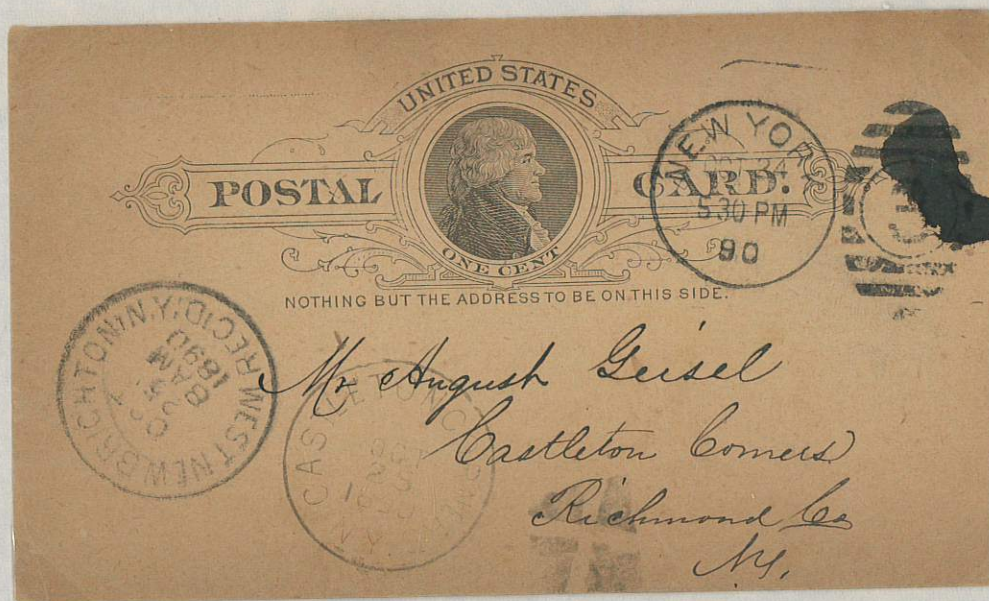 UNITED STATES
POSTAL CARD.
ONE CENT
NOTHING BUT THE ADDRESS TO BE ON THIS SIDE.
NEW YORK
OCT 24
530 PM
90
WEST NEW BRIGHTON, N.Y.
REC'D.
OCT
25
8 AM
1890
CASTLETON CORNERS
Mr August Geisel
Castleton Corners
Richmond Co
N.Y.